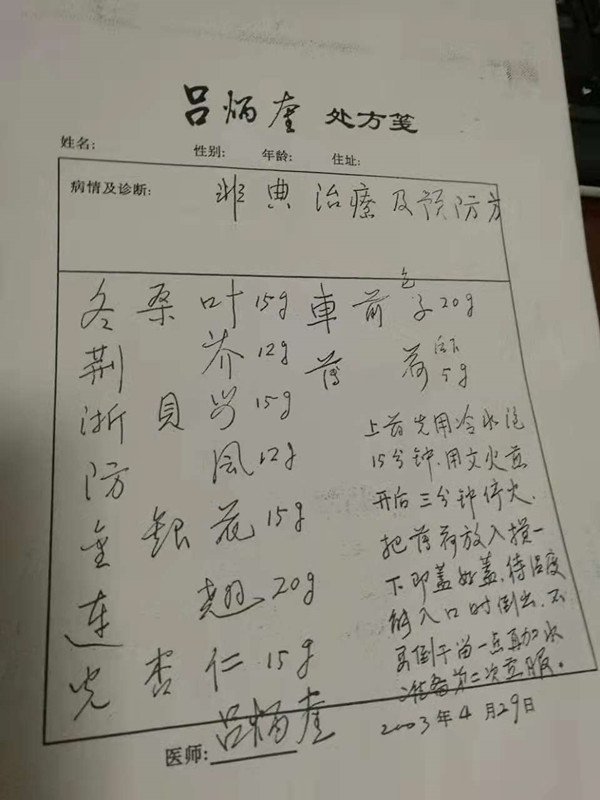 吕炳奎 处方笺
姓名: 性别: 年龄: 住址:
病情及诊断: 非典治療及预防方
冬桑叶15g 車前子20g 包
荆芥12g 薄荷5g 后下
浙貝母15g
防風12g
金银花15g
连翘20g
光杏仁15g
上药先用冷水泡
15分钟.用文火煎
开后三分钟停火.
把薄荷放入搅一
下即盖好盖,待温度
能入口时倒出.不
要倒干留一点再加水
准备第二次煎服。
医师: 吕炳奎
2003年4月29日